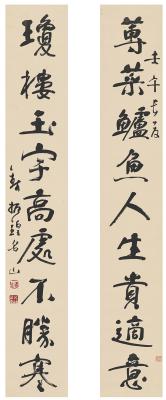 蓴菜鱸魚人生貴適意
壬午春月
瓊樓玉宇高處不勝寒